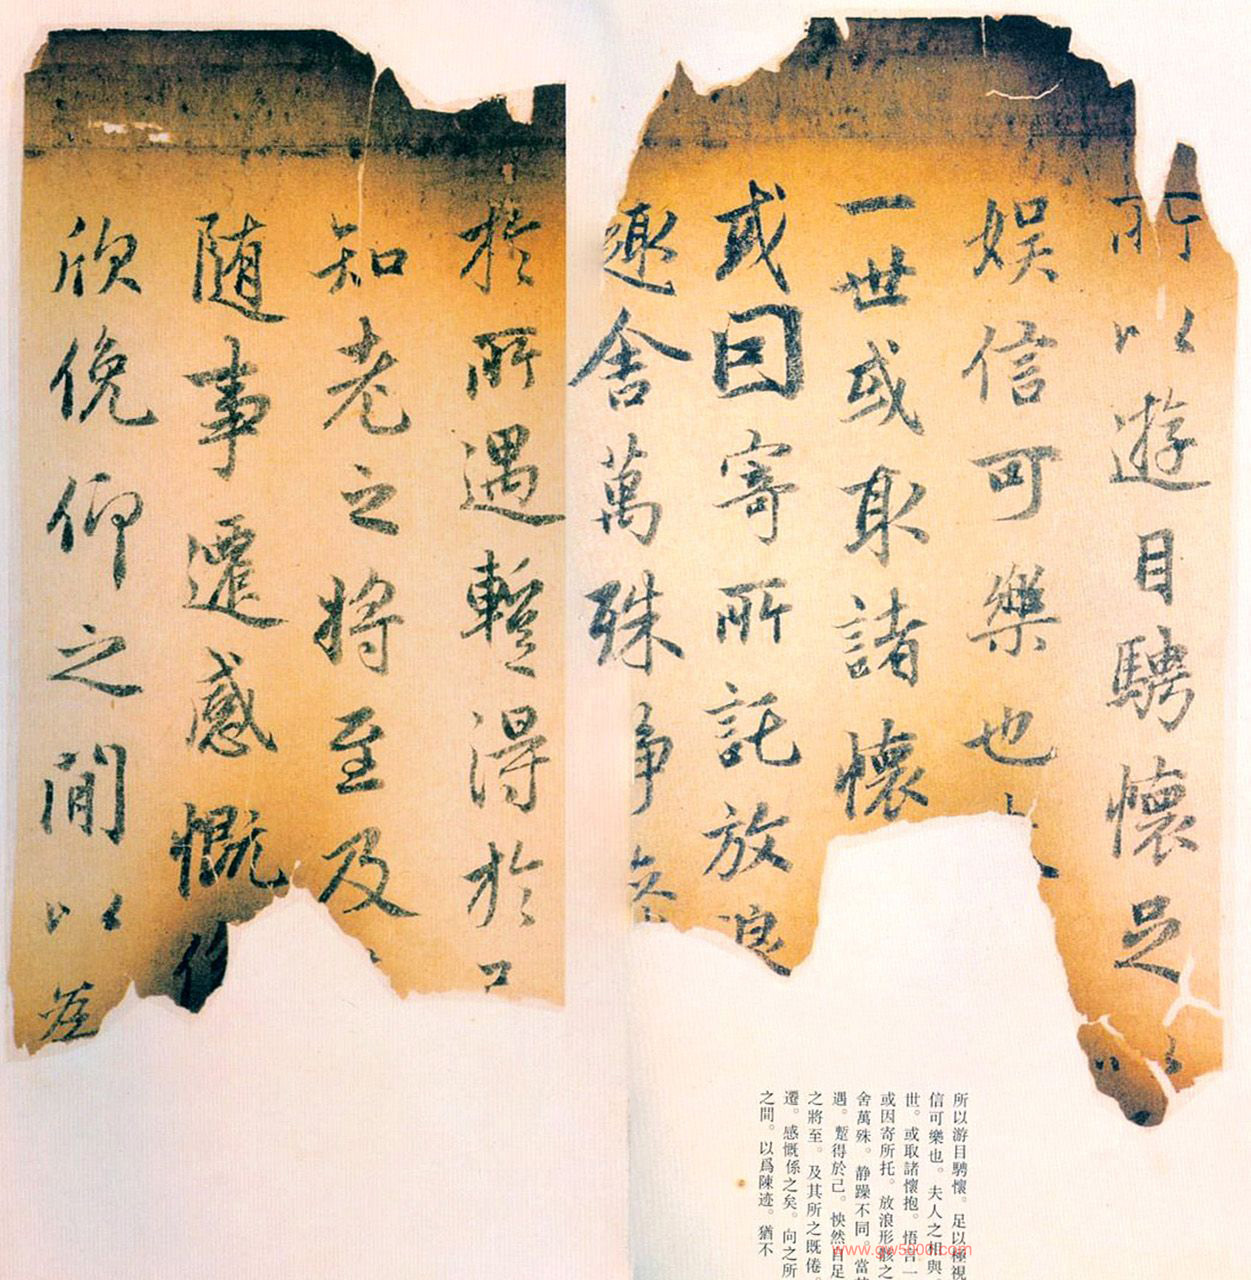 所以遊目騁懷足以
娛信可樂也
一世或取諸懷
或囙寄所託放浪
趣舍萬殊静
於所遇蹔得於
知老之將至及
随事遷感慨係
欣俛仰之間以為
所以游目騁懷。足以極視
信可樂也。夫人之相與。
世。或取諸懷抱。悟言一
或因寄所托。放浪形骸之
舍萬殊。静躁不同。當
遇。蹔得於己。怏然自足
之將至。及其所之既倦。
遷。感慨係之矣。向之所
之間。以爲陳迹。猶不